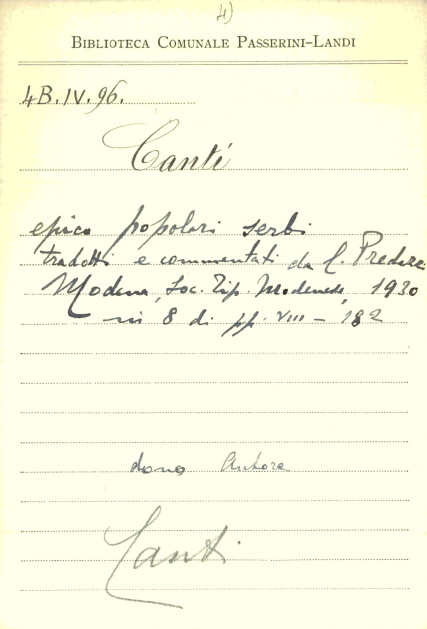 4)
BIBLIOTECA COMUNALE PASSERINI-LANDI
4B.IV.96.
Canti
epico popolari serbi
tradotti e commentati da
Modena, Soc. Tip. Modenese, 1930
in 8 di pp. VIII - 182
dono Autore
Canti